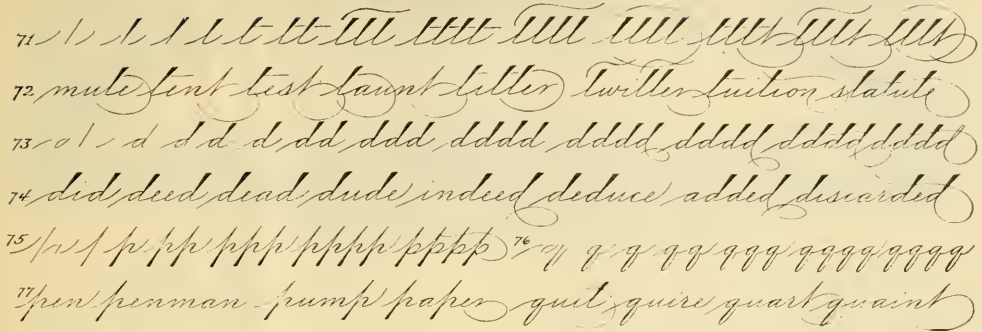 71 l l l t t tt ttt tttt tttt tttt tttt tttt tttt
72 mute tent test taunt titter twitter tuition statute
73 o l d d d d dd ddd dddd dddd dddd dddd dddd
74 did deed dead dude indeed deduce added discarded
75 p p pp ppp pppp pppp 76 q q q qq qqq qqqq qqqq
77 pen penman pump paper quit quire quart quaint